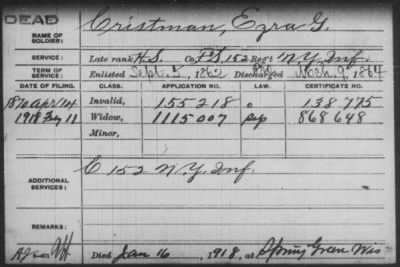 DEAD
NAME OF SOLDIER: Cristman, Ezra G.
SERVICE: Late rank H.S. Co. F.S, 152 Reg't N.Y. Inf.
TERM OF SERVICE: Enlisted Sept 1862 Discharged Mch. 9 1864
DATE OF FILING. CLASS. APPLICATION NO. LAW. CERTIFICATE NO.
Apr 14 Invalid, 155218 138775
1918 11 Widow, 1115007 868648
Minor,
ADDITIONAL SERVICES: C 152 N.Y. Inf.
REMARKS:
Died Jan 16, 1918, at Spring Green Wis